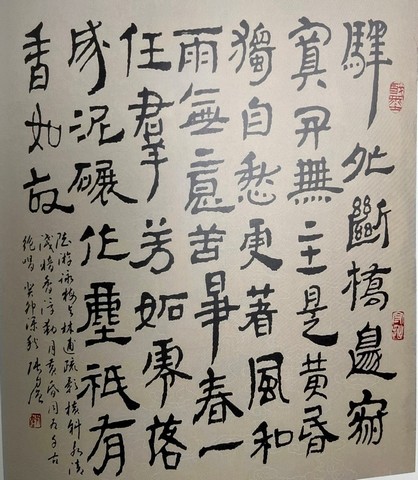 驛外斷橋邊寂
寞开無主是黃昏
獨自愁更著風和
雨無意苦爭春一
任羣芳妒零落
成泥碾作塵祇有
香如故
陸游詠梅與林逋疏影橫斜水清
淺暗香浮動月黃昏同為千古
絕唱 癸卯深秋